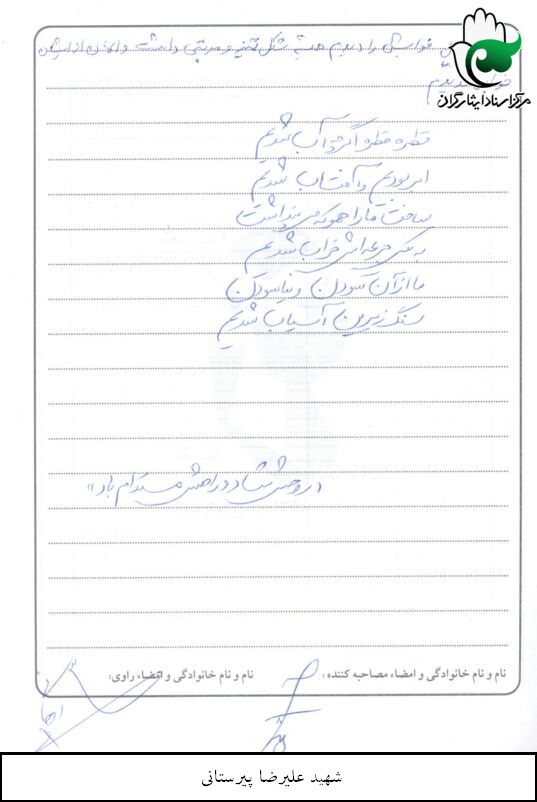 مرکز اسناد ایثارگران
خوابش را دیدم همیشه شکل
قطره قطره اگرچه آب شدیم
ابر بودیم و آفتاب شدیم
ساخت ما را همو که می‌پنداشت
به یکی جرعه‌اش خراب شدیم
ما از آن سودن و نیاسودن
سنگ زیرین آسیاب شدیم
«روحش شاد و راهش مستدام باد»
نام و نام خانوادگی و امضاء مصاحبه کننده : نام و نام خانوادگی و امضاء راوی:
شهید علیرضا پیرستانی